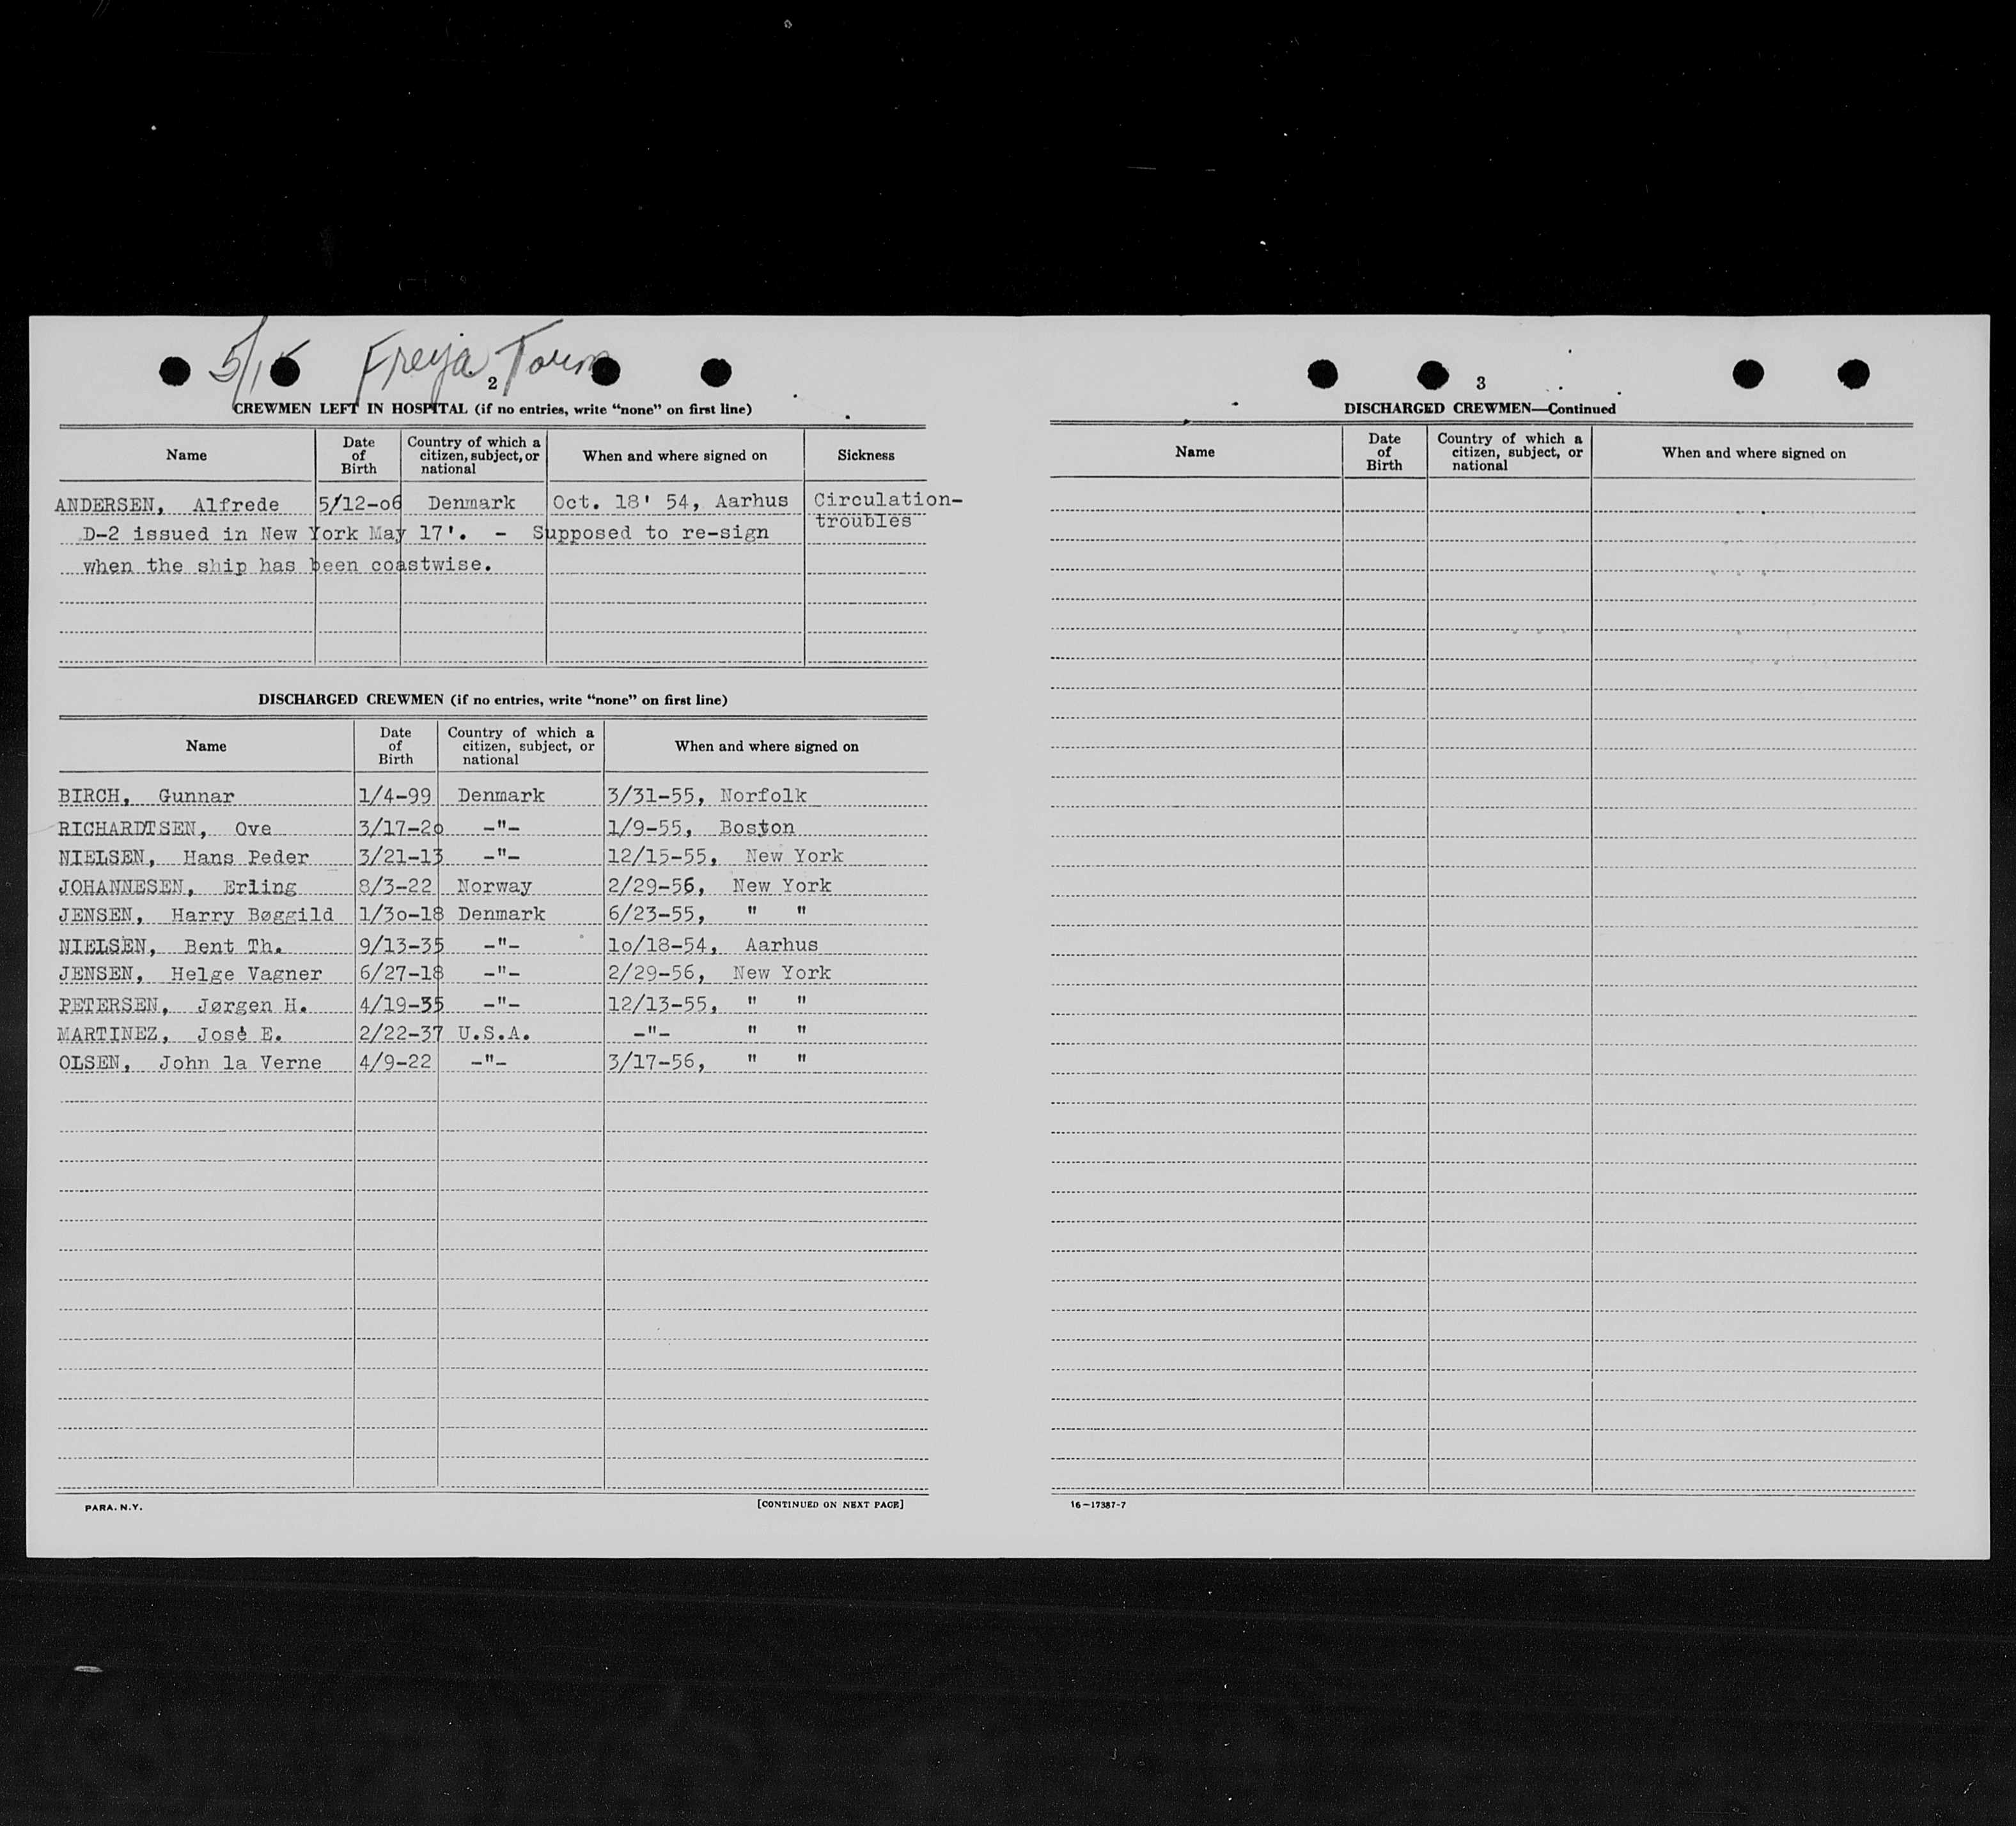 5/15 Freya Torm
2
CREWMEN LEFT IN HOSPITAL (if no entries, write “none” on first line)
Name Date of Birth Country of which a citizen, subject, or national When and where signed on Sickness
ANDERSEN, Alfrede 5/12-06 Denmark Oct. 18' 54, Aarhus Circulation-
troubles
D-2 issued in New York May 17'. - Supposed to re-sign
when the ship has been coastwise.
DISCHARGED CREWMEN (if no entries, write “none” on first line)
Name Date of Birth Country of which a citizen, subject, or national When and where signed on
BIRCH, Gunnar 1/4-99 Denmark 3/31-55, Norfolk
RICHARDTSEN, Ove 3/17-2o -"- 1/9-55, Boston
NIELSEN, Hans Peder 3/21-13 -"- 12/15-55, New York
JOHANNESEN, Erling 8/3-22 Norway 2/29-56, New York
JENSEN, Harry Bøggild 1/3o-18 Denmark 6/23-55, " "
NIELSEN, Bent Th. 9/13-35 -"- 1o/18-54, Aarhus
JENSEN, Helge Vagner 6/27-18 -"- 2/29-56, New York
PETERSEN, Jørgen H. 4/19-35 -"- 12/13-55, " "
MARTINEZ, José E. 2/22-37 U.S.A. -"- " "
OLSEN, John la Verne 4/9-22 -"- 3/17-56, " "
PARA. N.Y. [CONTINUED ON NEXT PAGE]
3
DISCHARGED CREWMEN—Continued
Name Date of Birth Country of which a citizen, subject, or national When and where signed on
16—17387-7